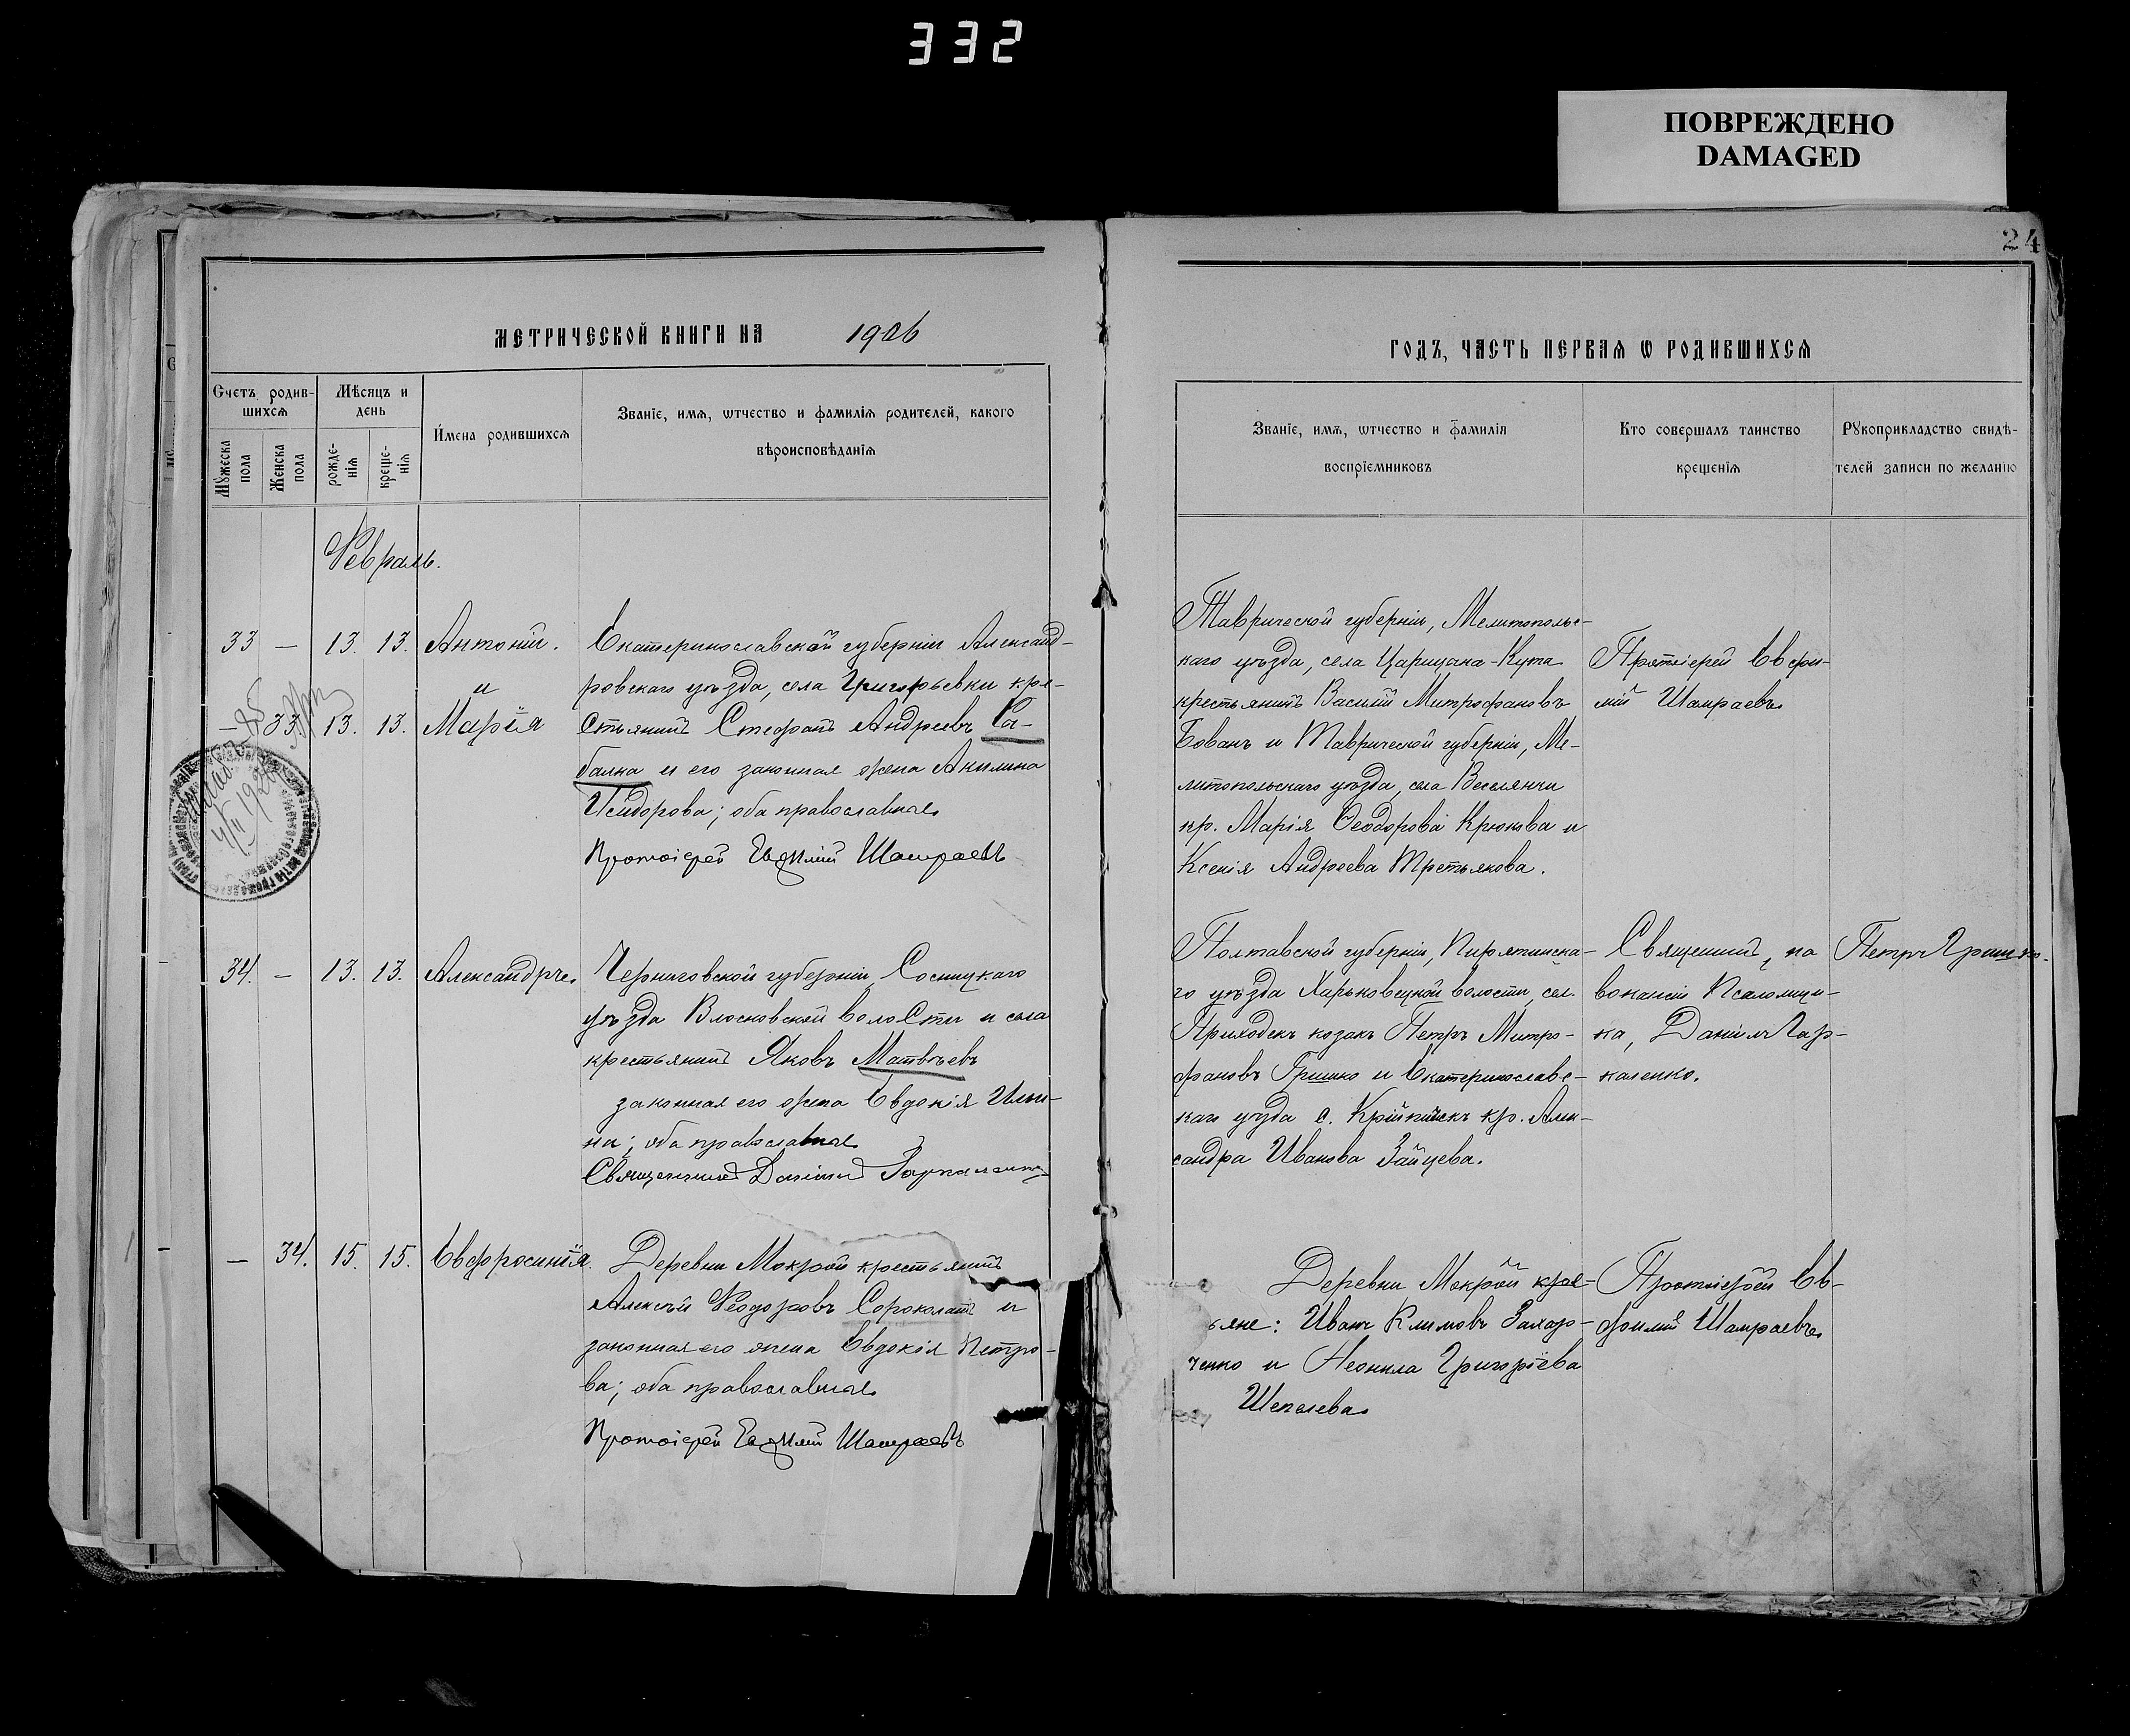 332
ПОВРЕЖДЕНО
DAMAGED
24
МЕТРИЧЕСКОЙ КНИГИ НА 1906
ГОДЪ, ЧАСТЬ ПЕРВАѦ Ѡ РОДИВШИХСѦ
Счетъ родив-
шихсѧ
Мѣсяцъ и
день
Имена родившихсѧ
Званіе, имѧ, ѡтчество и фамиліѧ родителей, какого
вѣроисповѣданіѧ
Мꙋжеска
пола
Женска
пола
рожде-
ніѧ
креще-
ніѧ
Званіе, имѧ, ѡтчество и фамиліѧ
воспріемниковъ
Кто совершалъ таинство
крещеніѧ
Рꙋкоприкладство свидѣ-
телей записи по желанію
Февраль.
33 — 13. 13. Антоній.
и
— 33 13. 13. Марія
Екатеринославской губерніи Александ-
ровскаго уѣзда, села Григорьевки кре-
стьянинъ Стефанъ Андреевъ Са-
балка и его законная жена Акилина
Исидорова; оба православные
Протоіерей Евфимій Шамраевъ
Таврической губерніи, Мелитопольс-
каго уѣзда, села Царицина-Кута
крестьянинъ Василій Митрофановъ
Бованъ и Таврической губерніи, Ме-
литопольскаго уѣзда, села Веселянки
кр. Марія Ѳеодорова Крюкова и
Ксенія Андреева Третьякова.
Протоіерей Евфи-
мій Шамраевъ
34. — 13. 13. Александръ
Черниговской губерніи, Сосницкаго
уѣзда Влосковской волости и села
крестьянинъ Яковъ Матвѣевъ
законная его жена Евдокія Ильи-
на; оба православные
Священникъ Даніилъ
Полтавской губерніи, Пирятинска-
го уѣзда Харьковецкой волости, сел.
Приходекъ козакъ Петръ Митро-
фановъ Гришко и Екатеринославс-
каго уѣзда с. кр. Алек-
сандра Иванова Зайцева.
Священникъ, на
вакансіи Псаломщи-
ка, Даніилъ Гар-
каленко.
Петръ Гришко.
— 34. 15. 15. Евфросинія.
Деревни Мокрой крестьянинъ
Алексѣй Феодоровъ Сороколатъ и
законная его жена Евдокія Петро-
ва; оба православные
Протоіерей Евфимій Шамраевъ
Деревни Мокрой крес-
ьяне: Иванъ Климовъ Захар-
ченко и Неонила Григоріева
Шепелева
Протоіерей Ев-
фимій Шамраевъ